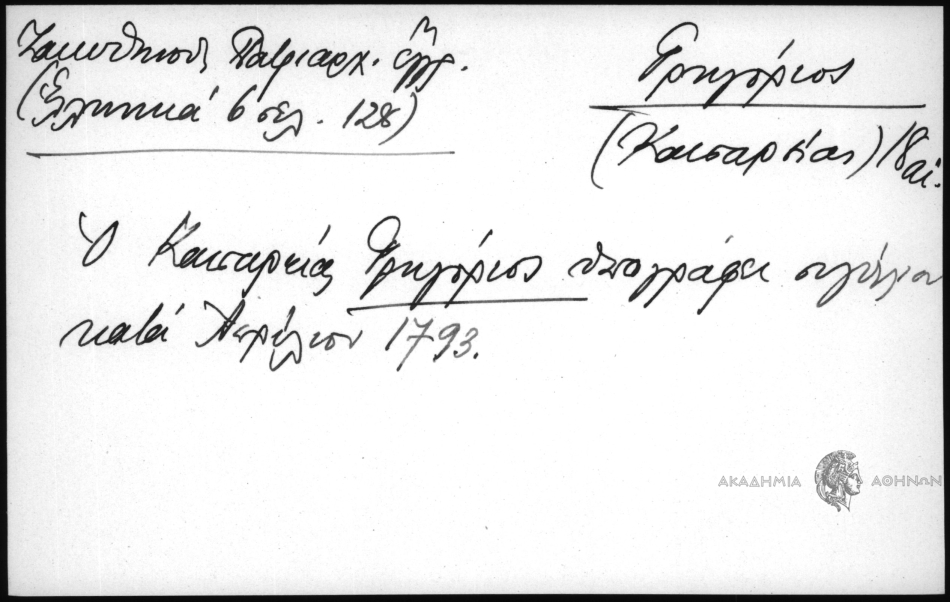 Ζακυθηνοῦ Πατριαρχ. ἔγγρ.
(Ἑλληνικά 6 σελ. 128)
Γρηγόριος
(Καισαρείας) 18 αἰ.
Ὁ Καισαρείας Γρηγόριος ὑπογράφει σιγίλλιον
κατά Ἀπρίλιον 1793.
ΑΚΑΔΗΜΙΑ ΑΘΗΝΩΝ